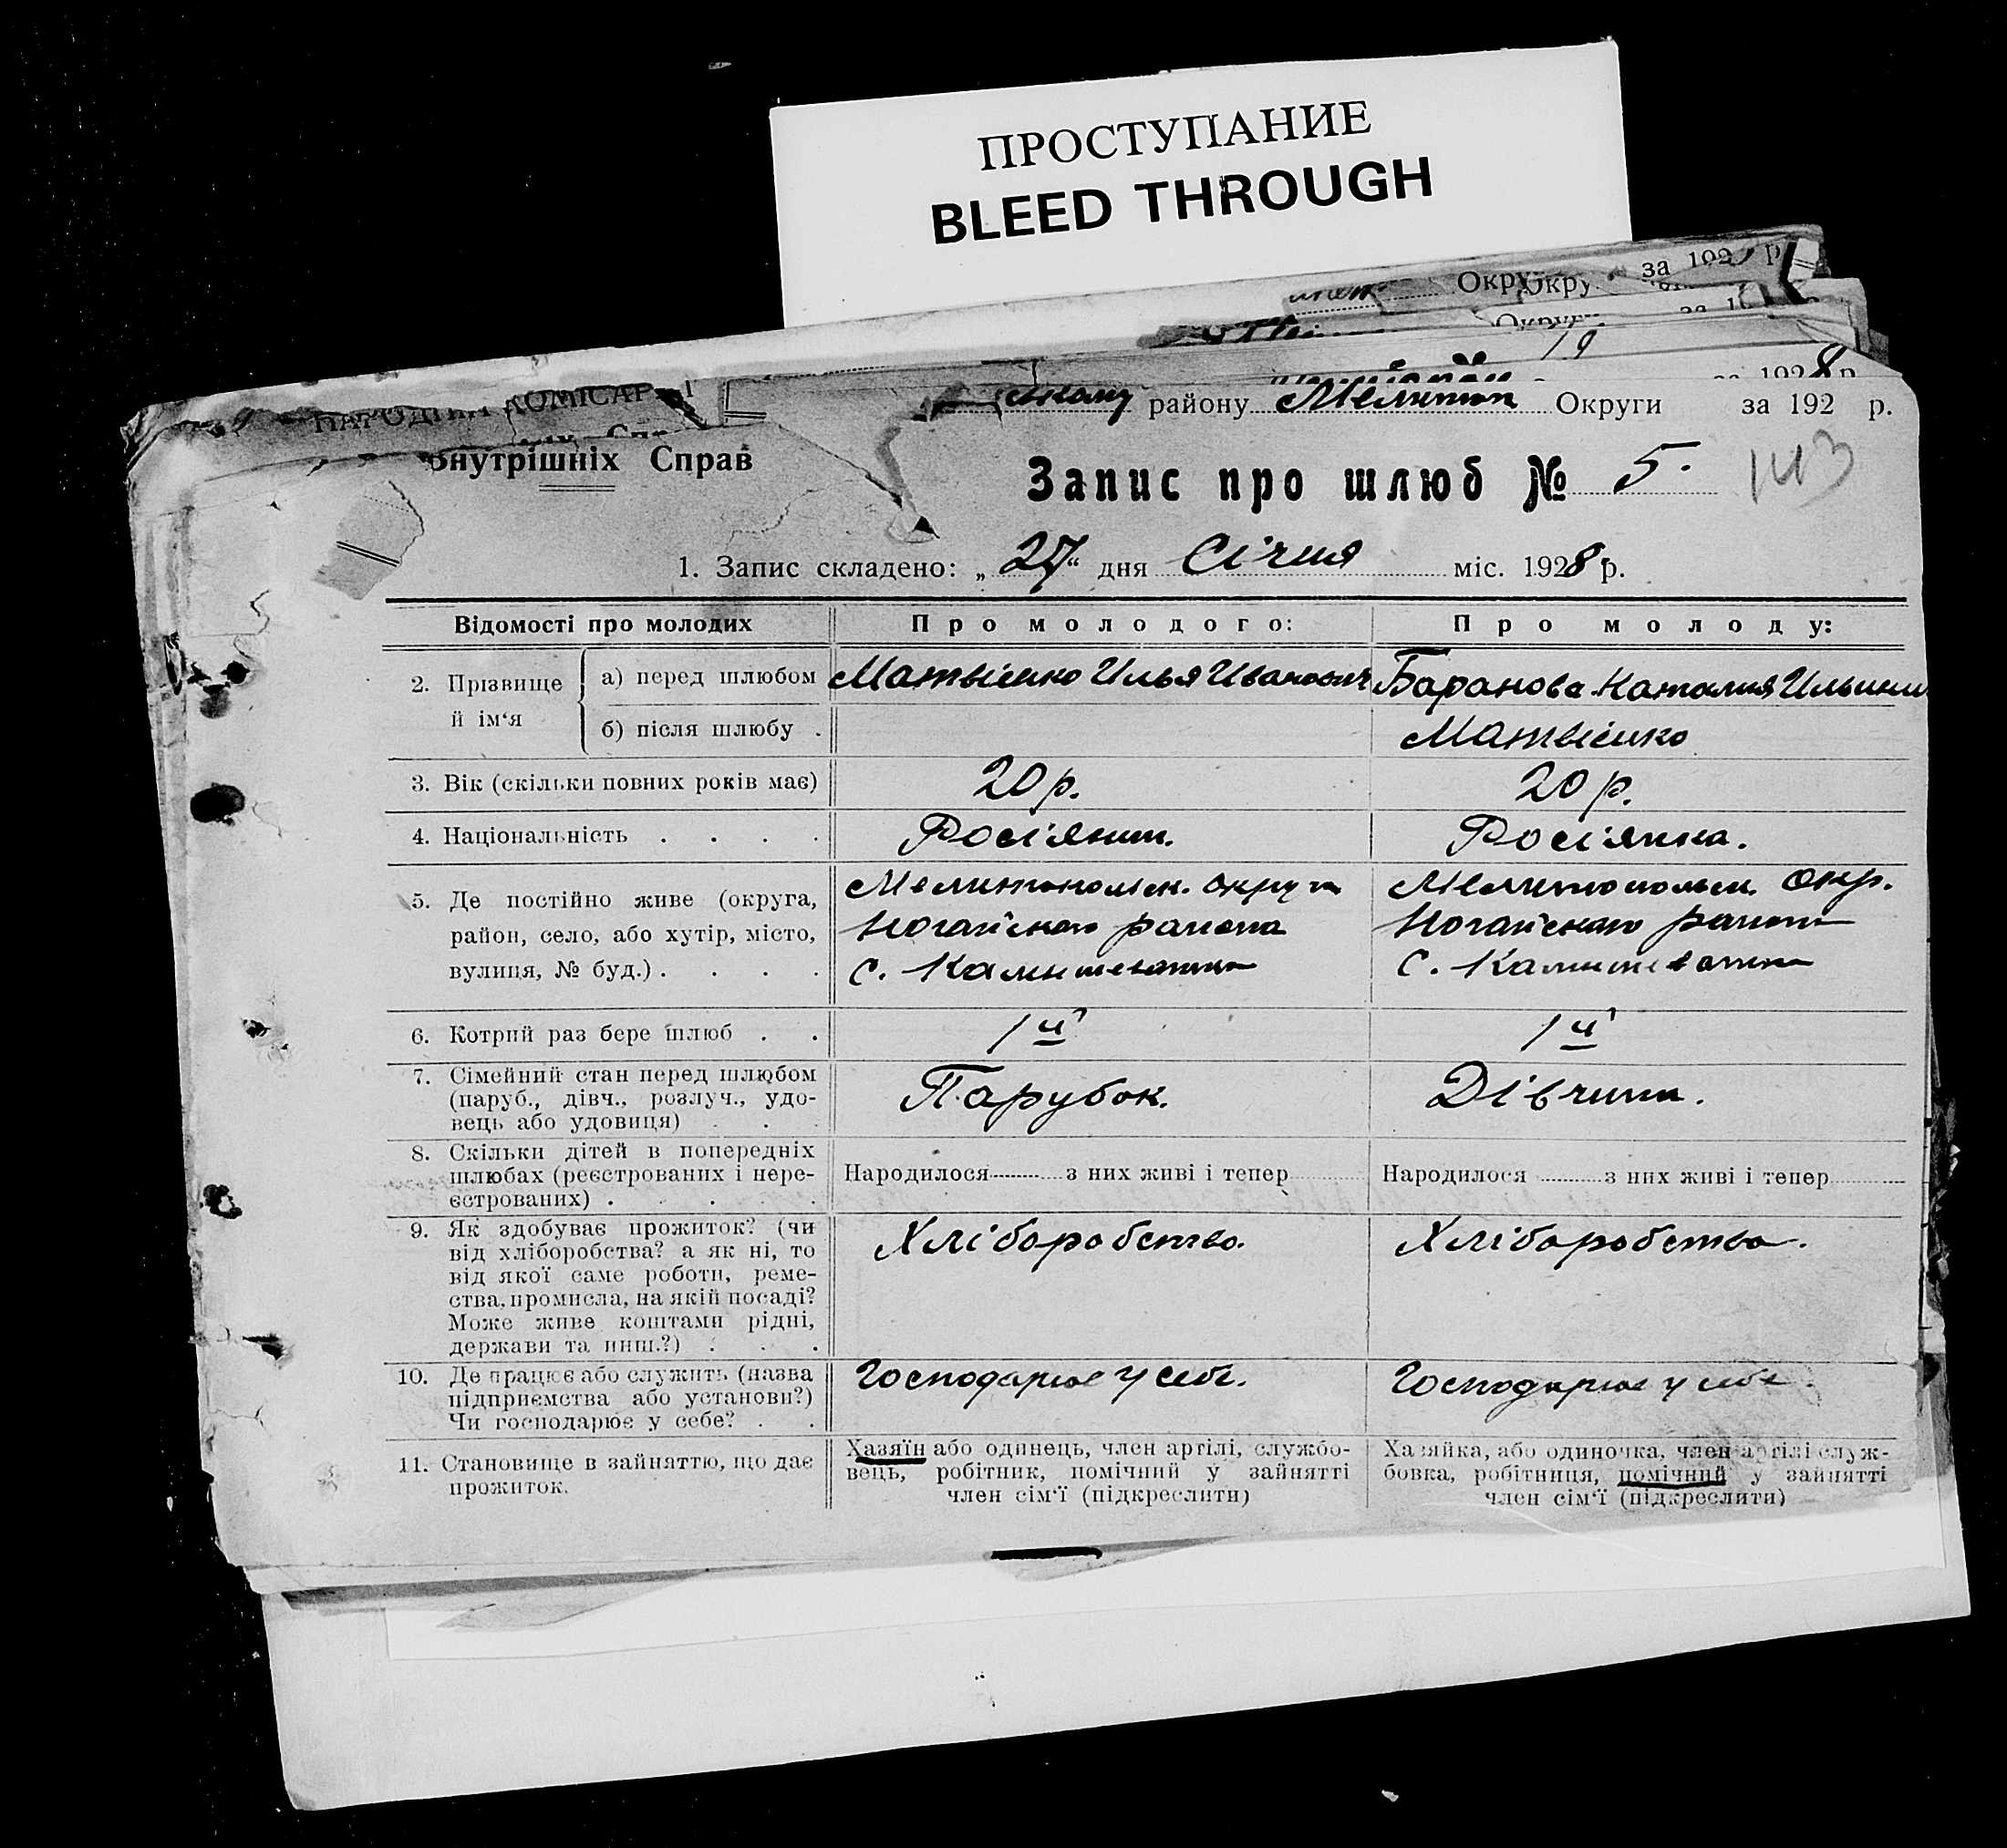 ПРОСТУПАНИЕ
BLEED THROUGH
за 192 р
Округи
за 1928 р.
району Мелитоп Округи за 192 р.
Внутрішніх Справ
Запис про шлюб № 5.
143
1. Запис складено: „27“ дня Січня міс. 1928 р.
Відомості про молодих Про молодого: Про молоду:
2. Прізвище й ім‘я
а) перед шлюбом Матвієнко Илья Иванович Баранова Наталия Ильини
б) після шлюбу . Матвієнко
3. Вік (скільки повних років має) 20 р. 20 р.
4. Національність . . . . Росіянин. Росіянка.
5. Де постійно живе (округа, Мелитопольск. округи Мелитопольск. окр.
район, село, або хутір, місто, Ногайского района Ногайского района
вулиця, № буд.) . . . . с. с.
6. Котрий раз бере шлюб . . 1й 1й
7. Сімейний стан перед шлюбом
(паруб., дівч., розлуч., удо- Парубок. Дівчина.
вець або удовиця) . . .
8. Скільки дітей в попередніх
шлюбах (реєстрованих і нере- Народилося ........ з них живі і тепер Народилося ........ з них живі і тепер
єстрованих) . . . .
9. Як здобуває прожиток? (чи Хліборобство. Хліборобство.
від хліборобства? а як ні, то
від якої саме роботи, реме-
ства, промисла, на якій посаді?
Може живе коштами рідні,
держави та инш.?) . . .
10. Де працює або служить (назва Господарює у себе. Господарює у себе.
підприємства або установи?)
Чи господарює у себе? . .
11. Становище в зайняттю, що дає
прожиток.
Хазяїн або одинець, член артілі, службо-
вець, робітник, помічний у зайнятті
член сім‘ї (підкреслити)
Хазяйка, або одиночка, член артілі служ-
бовка, робітниця, помічний у зайнятті
член сім‘ї (підкреслити)